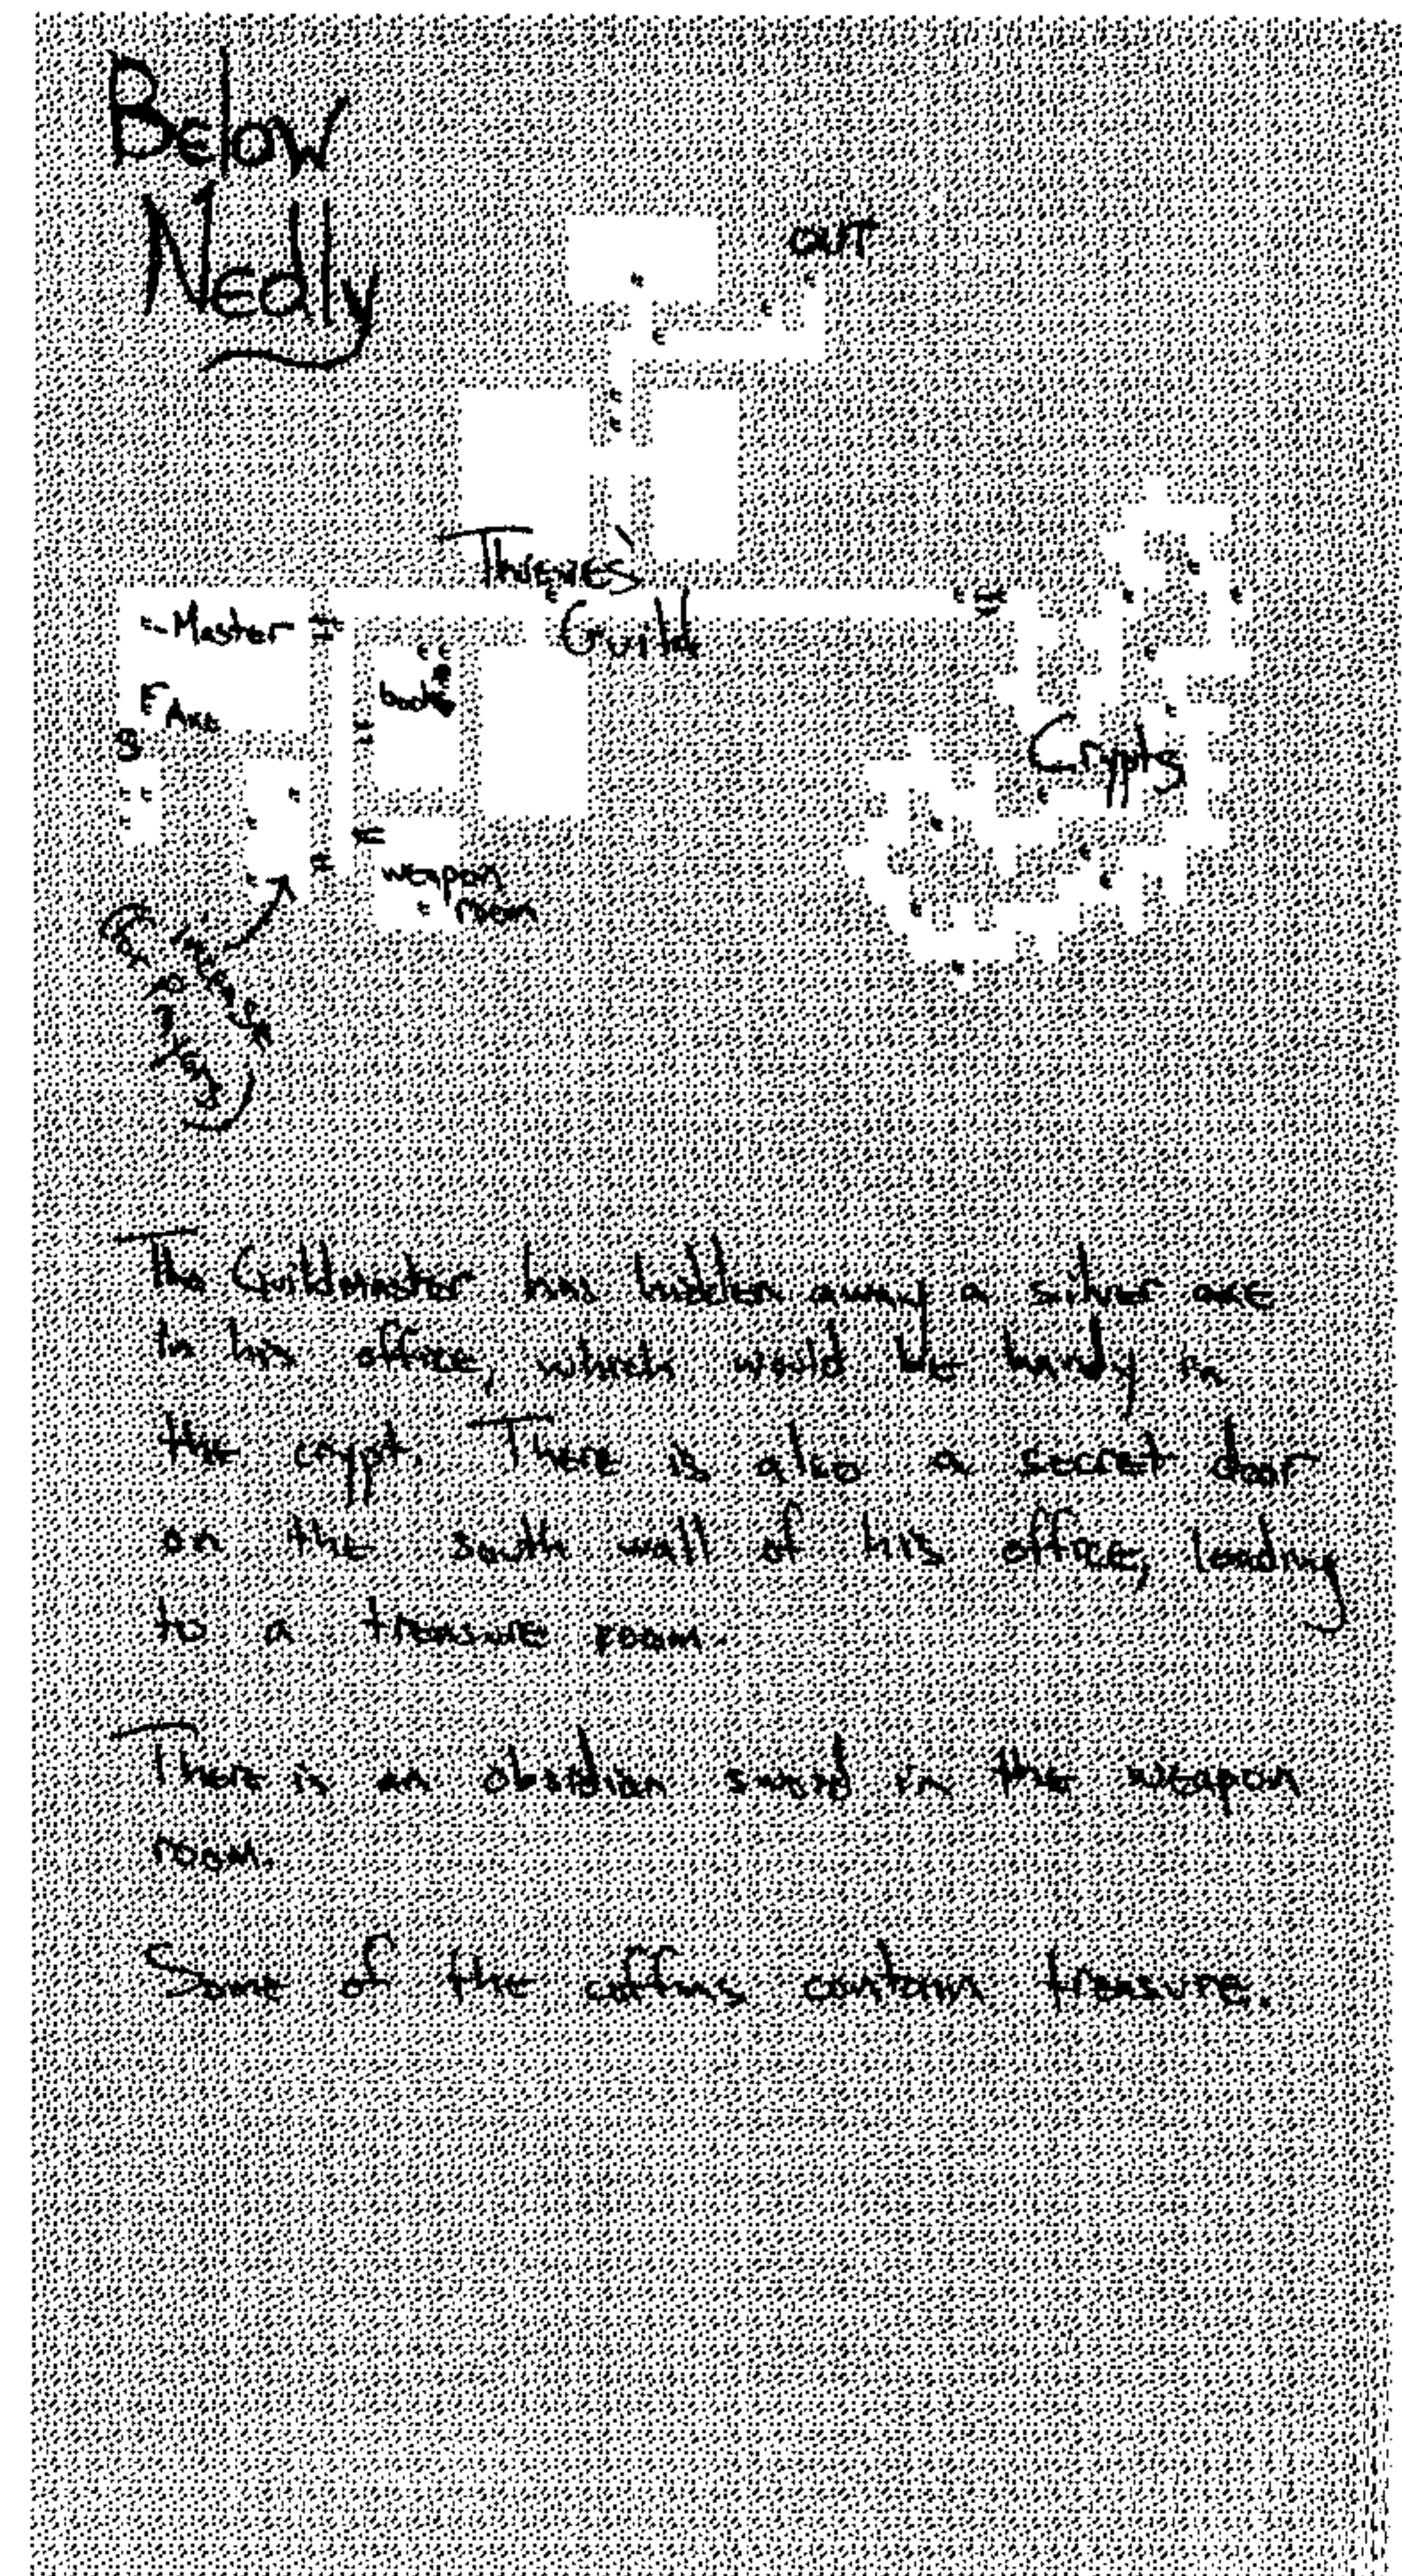 Below
Nedly
OUT
Thieves'
Guild
Master
Axe
books
weapon
room
Crypts
The Guildmaster has hidden away a silver axe
in his office, which would be handy in
the crypt. There is also a secret door
on the south wall of his office, leading
to a treasure room.
There is an obsidian sword in the weapon
room.
Some of the coffins contain treasure.